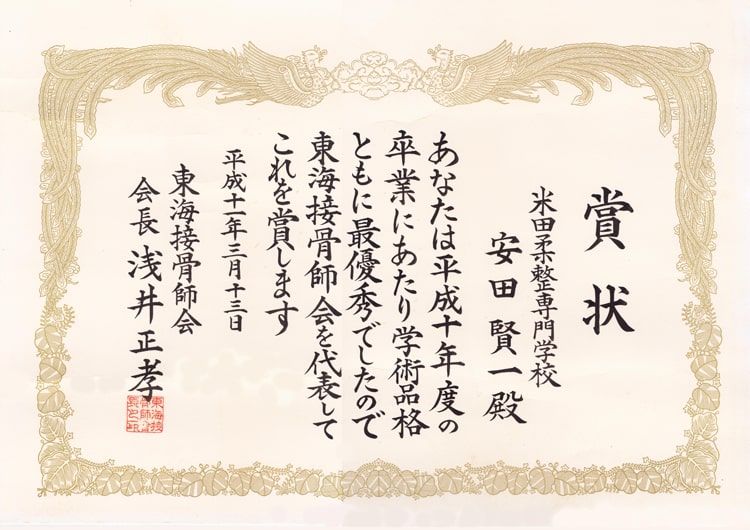 賞状
米田柔整専門学校
安田賢一殿
あなたは平成十年度の
卒業にあたり学術品格
ともに最優秀でしたので
東海接骨師会を代表して
これを賞します
平成十一年三月十三日
東海接骨師会
会長 浅井正孝
東海接
骨師会
長之印